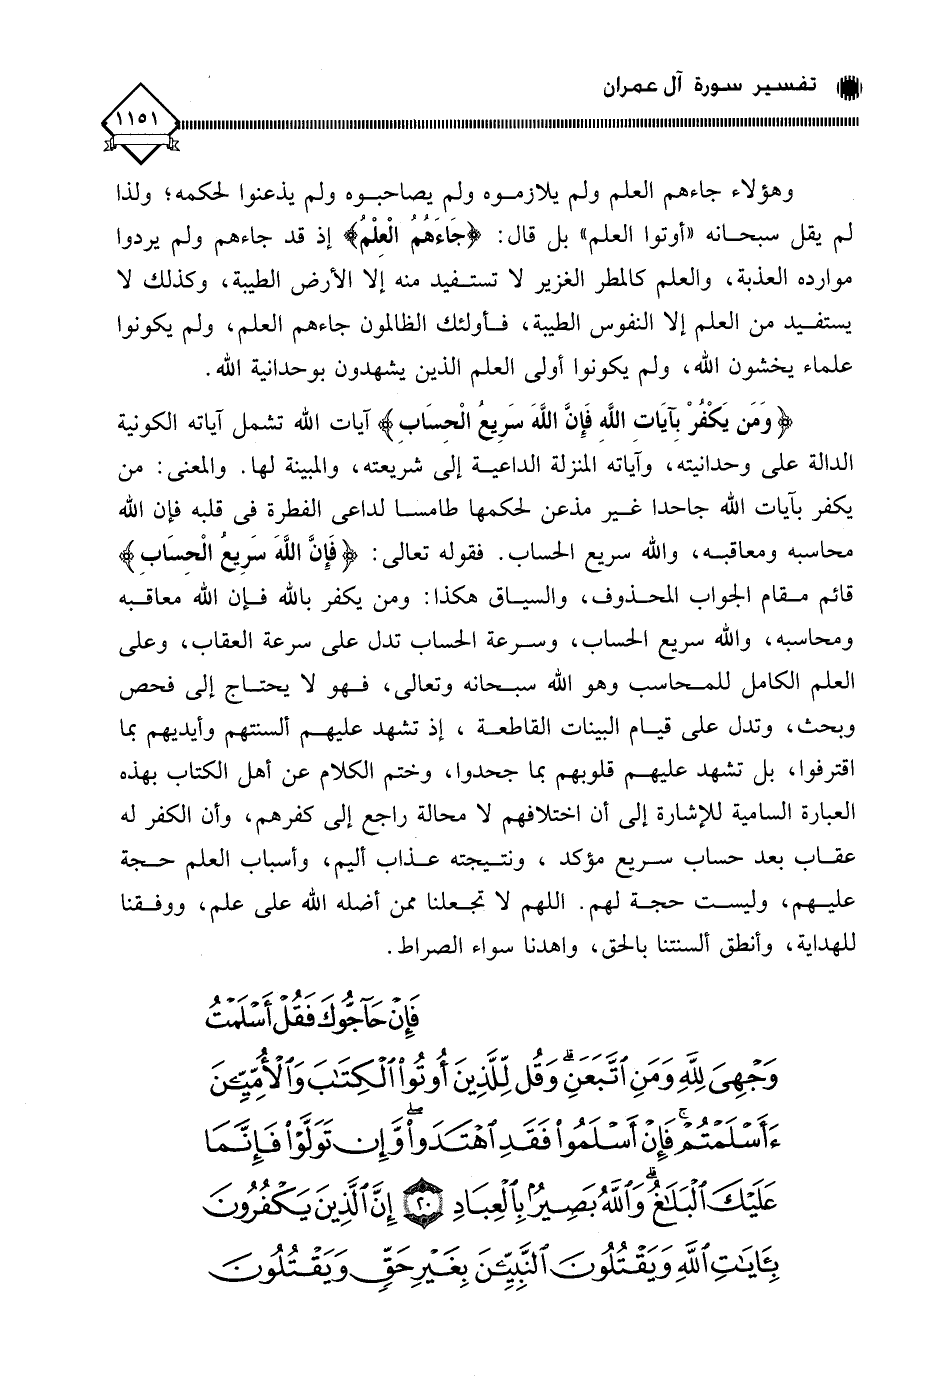 تفسير سورة آل عمران
١١٥١
وهؤلاء جاءهم العلم ولم يلازموه ولم يصاحبوه ولم يذعنوا لحكمه؛ ولذا
لم يقل سبحانه «أوتوا العلم» بل قال: ﴿جَاءَهُمُ الْعِلْمُ﴾ إذ قد جاءهم ولم يردوا
موارده العذبة، والعلم كالمطر الغزير لا تستفيد منه إلا الأرض الطيبة، وكذلك لا
يستفيد من العلم إلا النفوس الطيبة، فأولئك الظالمون جاءهم العلم، ولم يكونوا
علماء يخشون الله، ولم يكونوا أولى العلم الذين يشهدون بوحدانية الله.
﴿وَمَن يَكْفُرْ بِآيَاتِ اللَّهِ فَإِنَّ اللَّهَ سَرِيعُ الْحِسَابِ﴾ آيات الله تشمل آياته الكونية
الدالة على وحدانيته، وآياته المنزلة الداعية إلى شريعته، والمبينة لها. والمعنى: من
يكفر بآيات الله جاحدا غير مذعن لحكمها طامسا لداعى الفطرة فى قلبه فإن الله
محاسبه ومعاقبه، والله سريع الحساب. فقوله تعالى: ﴿فَإِنَّ اللَّهَ سَرِيعُ الْحِسَابِ﴾
قائم مقام الجواب المحذوف، والسياق هكذا: ومن يكفر بالله فإن الله معاقبه
ومحاسبه، والله سريع الحساب، وسرعة الحساب تدل على سرعة العقاب، وعلى
العلم الكامل للمحاسب وهو الله سبحانه وتعالى، فهو لا يحتاج إلى فحص
وبحث، وتدل على قيام البينات القاطعة ، إذ تشهد عليهم ألسنتهم وأيديهم بما
اقترفوا، بل تشهد عليهم قلوبهم بما جحدوا، وختم الكلام عن أهل الكتاب بهذه
العبارة السامية للإشارة إلى أن اختلافهم لا محالة راجع إلى كفرهم، وأن الكفر له
عقاب بعد حساب سريع مؤكد ، ونتيجته عذاب أليم، وأسباب العلم حجة
عليهم، وليست حجة لهم. اللهم لا تجعلنا ممن أضله الله على علم، ووفقنا
للهداية، وأنطق ألسنتنا بالحق، واهدنا سواء الصراط.
فَإِنْ حَآجُّوكَ فَقُلْ أَسْلَمْتُ
وَجْهِىَ لِلَّهِ وَمَنِ ٱتَّبَعَنِ ۗ وَقُل لِّلَّذِينَ أُوتُوا۟ ٱلْكِتَٰبَ وَٱلْأُمِّيِّـۧنَ
ءَأَسْلَمْتُمْ ۚ فَإِنْ أَسْلَمُوا۟ فَقَدِ ٱهْتَدَوا۟ ۖ وَّإِن تَوَلَّوْا۟ فَإِنَّمَا
عَلَيْكَ ٱلْبَلَٰغُ ۗ وَٱللَّهُ بَصِيرٌۢ بِٱلْعِبَادِ ٢٠ إِنَّ ٱلَّذِينَ يَكْفُرُونَ
بِـَٔايَٰتِ ٱللَّهِ وَيَقْتُلُونَ ٱلنَّبِيِّـۧنَ بِغَيْرِ حَقٍّ وَيَقْتُلُونَ